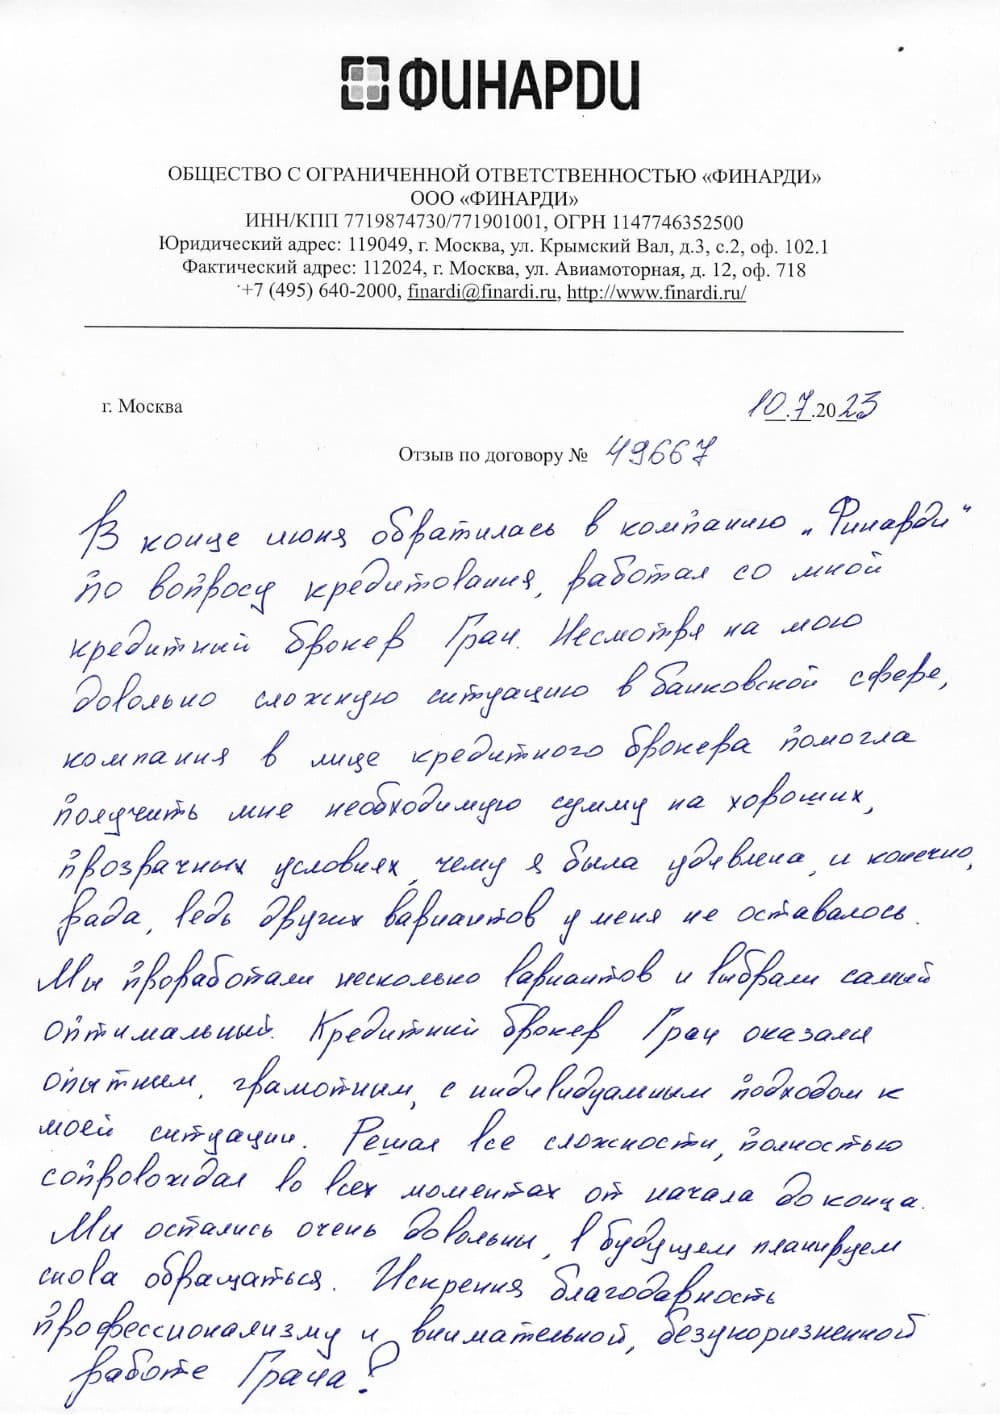 ФИНАРДИ
ОБЩЕСТВО С ОГРАНИЧЕННОЙ ОТВЕТСТВЕННОСТЬЮ «ФИНАРДИ»
ООО «ФИНАРДИ»
ИНН/КПП 7719874730/771901001, ОГРН 1147746352500
Юридический адрес: 119049, г. Москва, ул. Крымский Вал, д.3, с.2, оф. 102.1
Фактический адрес: 112024, г. Москва, ул. Авиамоторная, д. 12, оф. 718
+7 (495) 640-2000, finardi@finardi.ru, http://www.finardi.ru/
г. Москва 10.7.2023
Отзыв по договору № 49667
В конце июня обратилась в компанию „Финарди“
по вопросу кредитования, работал со мной
кредитный брокер Грач. Несмотря на мою
довольно сложную ситуацию в банковской сфере,
компания в лице кредитного брокера помогла
получить мне необходимую сумму на хороших,
прозрачных условиях, чему я была удивлена, и конечно,
рада, ведь других вариантов у меня не оставалось.
Мы проработали несколько вариантов и выбрали самый
оптимальный. Кредитный брокер Грач оказался
опытным, грамотным, с индивидуальным подходом к
моей ситуации. Решал все сложности, полностью
сопровождал во всех моментах от начала до конца.
Мы остались очень довольны, в будущем планируем
снова обращаться. Искрення благодарность
профессионализму и внимательной, безукоризненной
работе Грача!